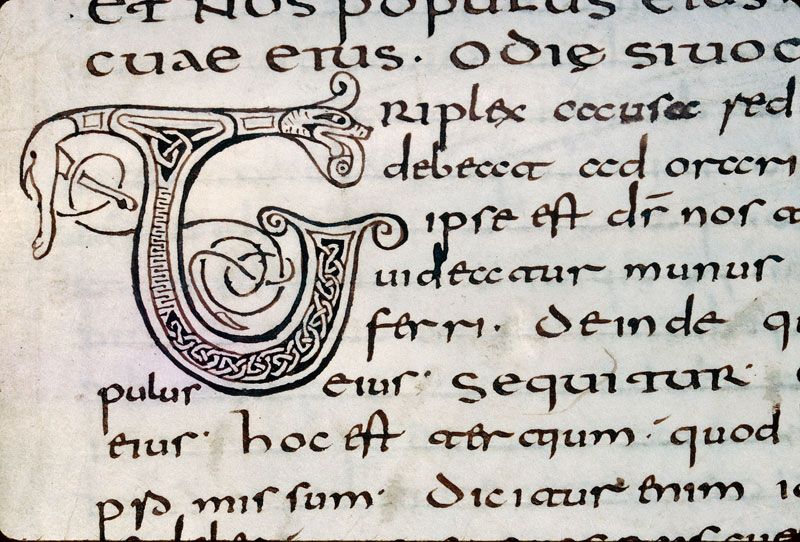 et nos populus eius
cuae eius. Odię siuoc
Triplex causa sed
debecca ad orari
ipse est dr̄ nos a
uideatur munus
ferri. Deinde qu
pulus eius. Sequitur
eius. hoc est aeraqum. quod
psō missum. Dicitur enim